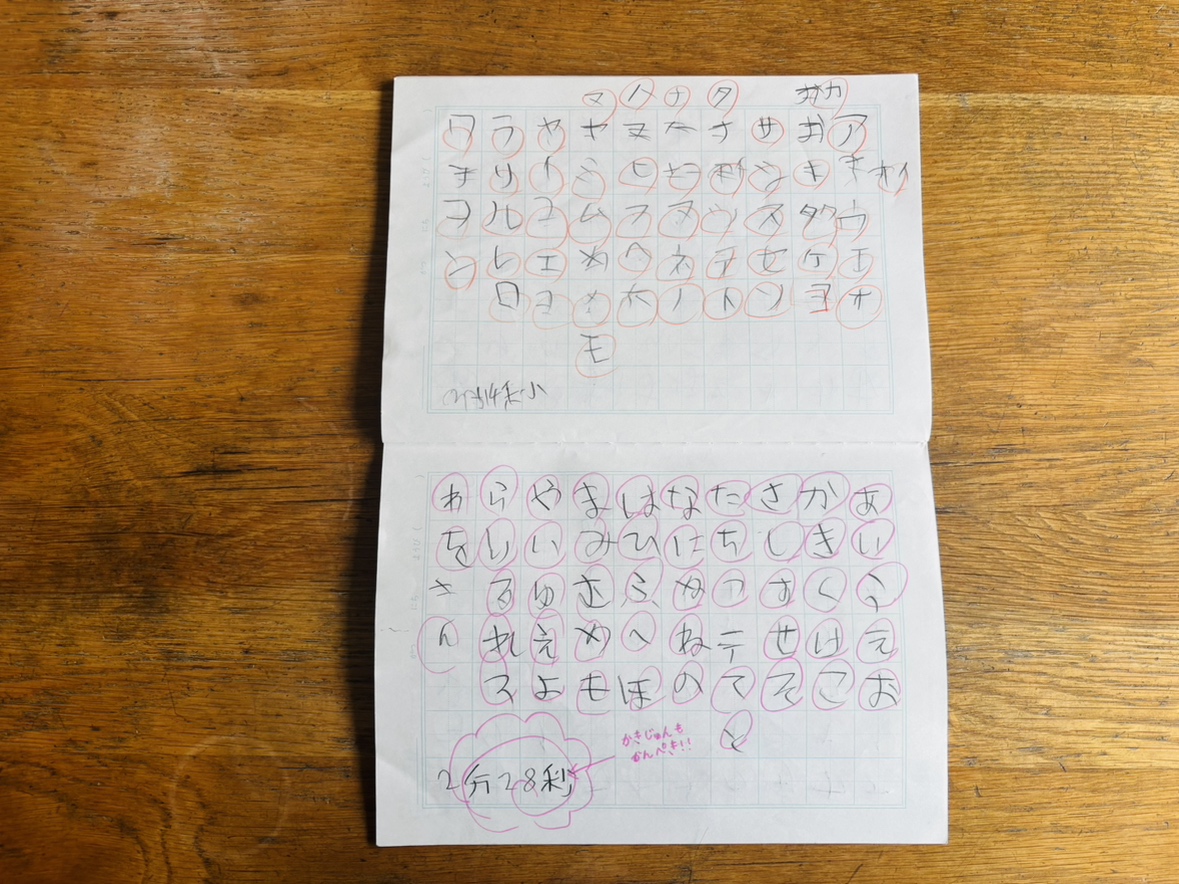 マ ハ ナ タ カ
ワ ラ ヤ ヤ ヌ ナ サ ア
ヲ リ イ ミ ヒ ニ シ キ イ
ヲ ル ユ ム フ ヌ ツ ス ク ウ
ン レ エ メ ヘ ネ テ セ ケ エ
ロ ヨ メ ホ ノ ト ソ ヨ オ
モ
わ ら や ま は な た さ か あ
を り い み ひ に ち し き い
さ る ゆ む ふ ぬ つ す く う
ん れ え め へ ね テ せ け え
ろ よ も ほ の て そ こ お
と
かきじゅんも
かんぺき!!
2分28秒